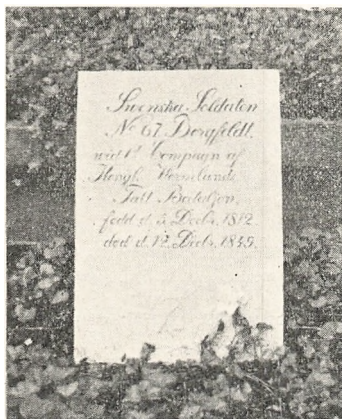 Swenska Soldaten
No 67. Bergfeldt.
wid 1st Compagn af
Kongl. Wermelands
Fält Bataljon,
född d. 5 Decbr. 1812
död d. 12 Decbr. 1839.